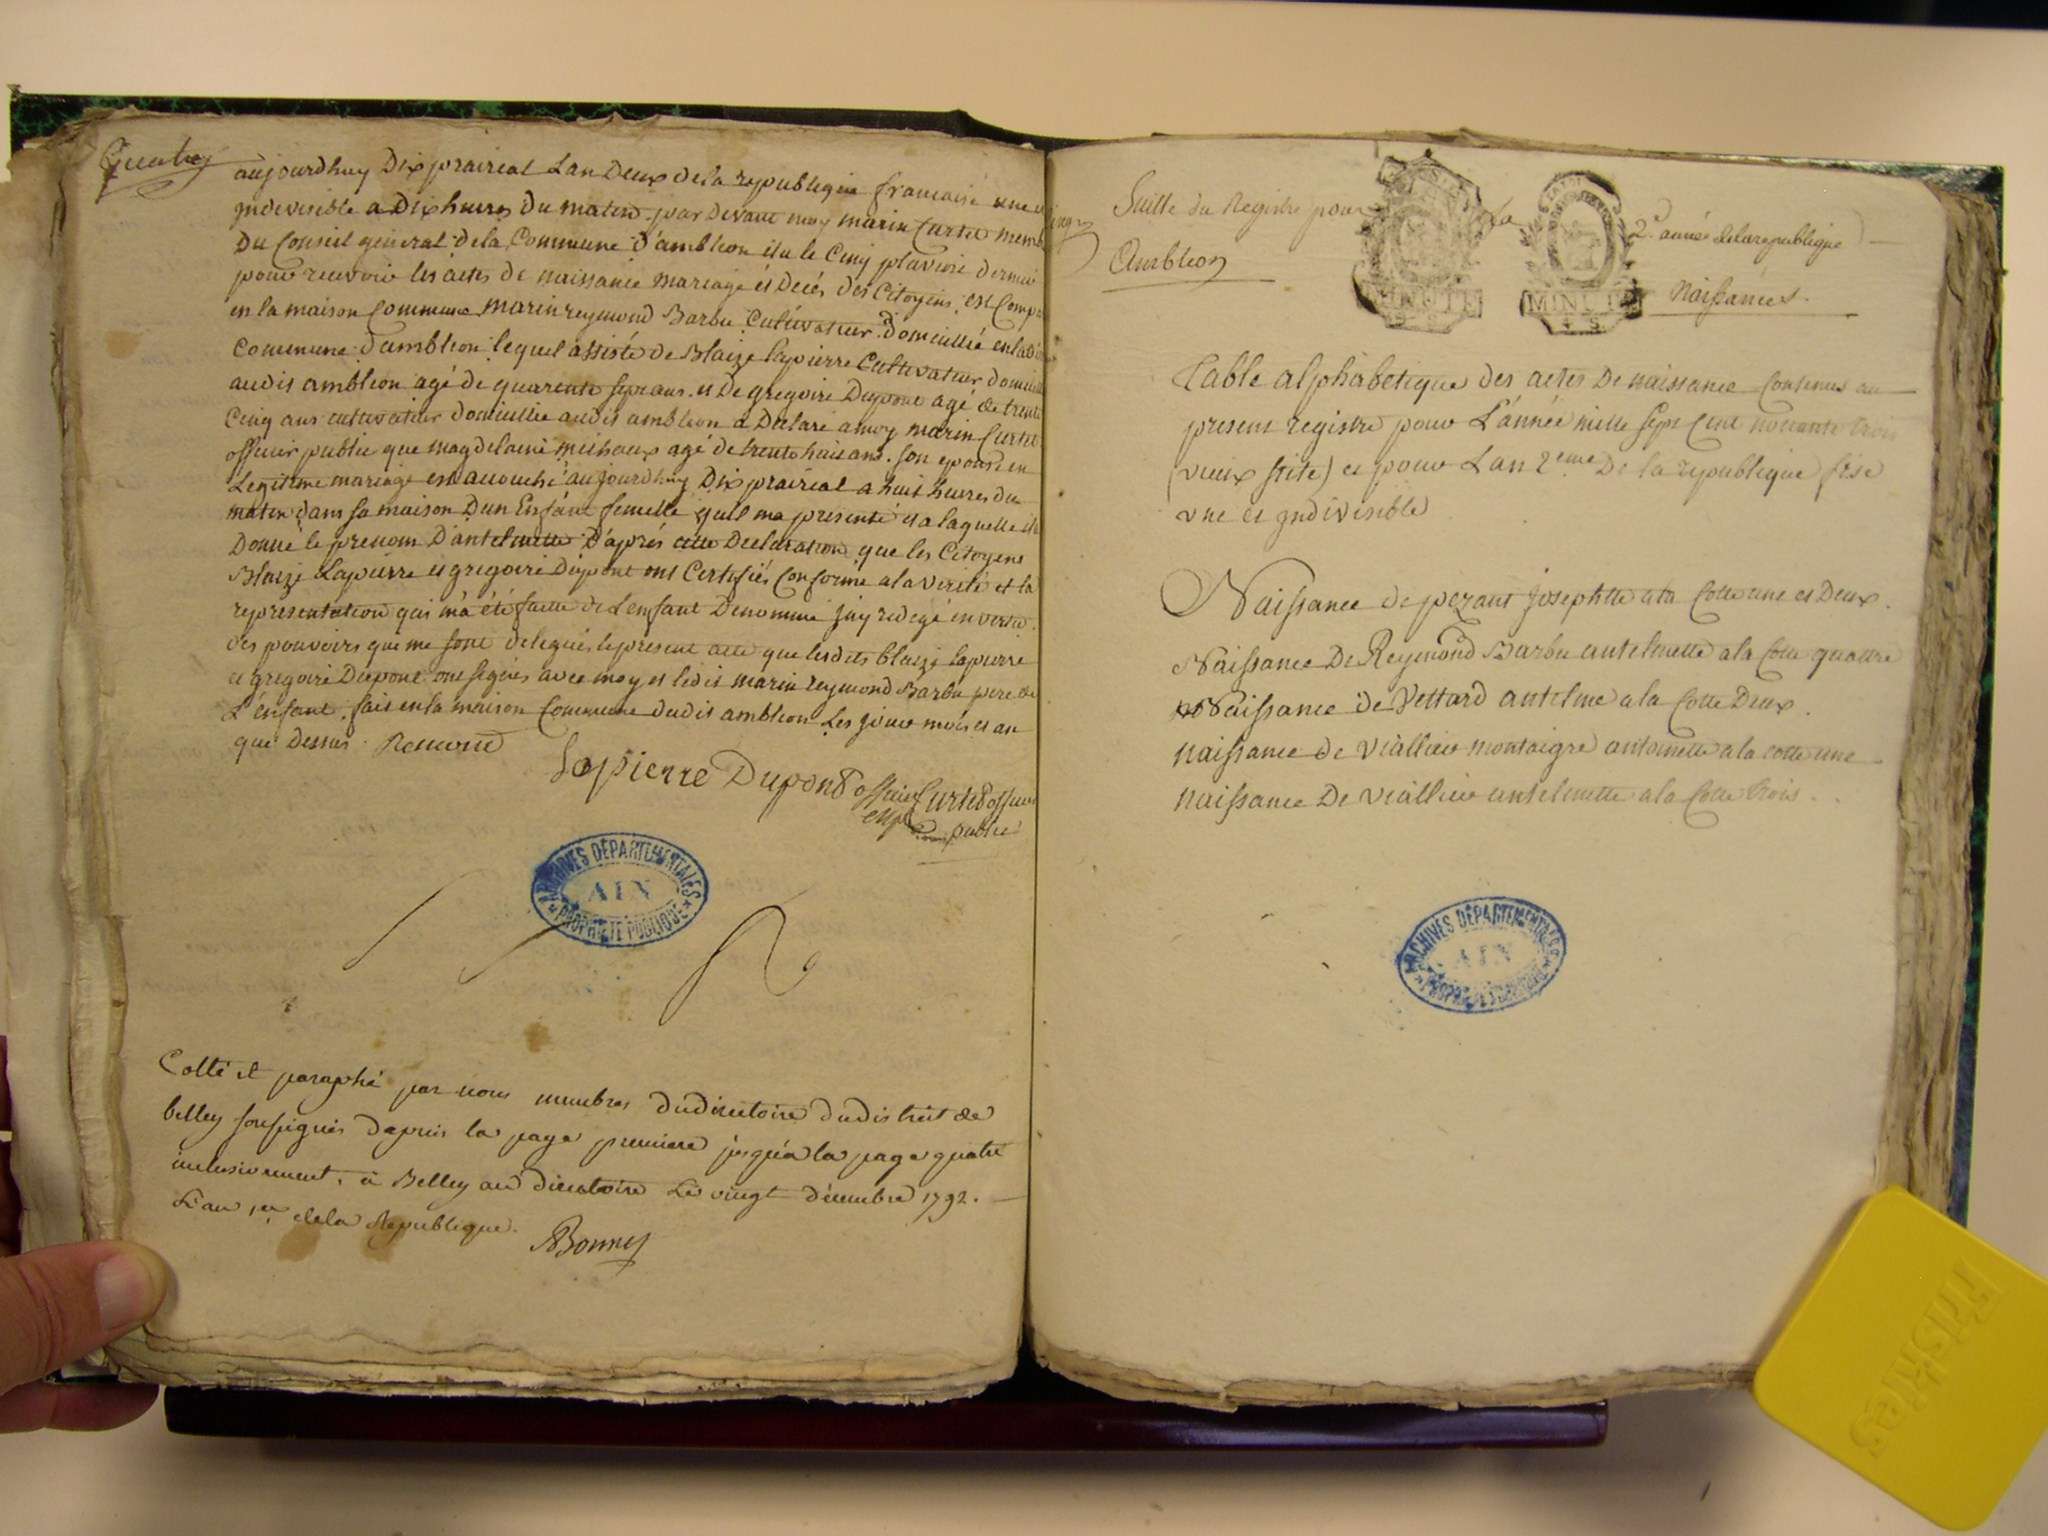 Quatre
aujourdhuy Dix prairial Lan Deux de la republique francaise une
Jndivisible a Dix heures Du matin par devant moy marin Curtet memb
Du Conseil general de la Commune d'ambleon elu le Cinq pluviose dernier
pour recevoir les actes de naissance mariage et Decés des Citoyens est Comp
en la maison Commune marin reymond Barbu Cultivateur domicillié en la
Commune d'ambleon lequel assisté de Blaize lapierre Cultivateur domicill
audit ambleon agé de quarente sept ans et De gregoire Dupont agé de trente
Cinq ans cultivateur domicillié audit ambleon a Declaré a moy marin Curtet
officier public que magdelaine michaux agé de trente huit ans son epouse en
Legitime mariage est acouché aujourdhuy Dix prairial a huit heures du
matin dans sa maison Dun Enfant femelle quil ma presenté et a laquelle il a
Donné le prenom D'antelmette D'aprés cette Declaration que les Citoyens
Blaize Lapierre et gregoire Dupont ont Certifiés Conforme a la verité et la
representation qui m'a été faitte de L'enfant Denommé j'ay redigé en vertu
des pouvoirs qui me sont delegués le present acte que lesdits blaize lapierre
et gregoire Dupont ont signés avec moy et ledit marin reymond Barbu pere de
L'enfant fait en la maison Commune dudit ambleon Les jour mois et an
que Dessus Remond
Lapierre Dupont officier Curtet officier
public
ARCHIVES DÉPARTEMENTALES
AIN
PROPRIÉTÉ PUBLIQUE
Cotté et paraphé par nous membres du directoire du district de
belley soussignés depuis la page premiere jusqu'a la page quatre
inclusivement, à Belley au directoire Le vingt décembre 1792.
L'an 1er de la Republique.
Bonnet
Suitte du Registre pour la 2e. année de la republique
Ambleon
MINUTE
MINUTE
4 S
Naissances.
Table alphabetique des actes De naissance Contenus au
present registre pour L'année mille Sept Cent nonante trois
(vieux stile) et pour Lan 2eme De la republique frse
vne et jndivisible
Naissance de pezant Josephtte a la Cotte une et Deux.
Naissance De Reymond Barbu antelmette a la Cotte quattre
Naissance de Vettard antelme a la Cotte Deux.
naissance de Viallier montaigre antoinette a la cotte une
naissance De Viallier antelmette a la Cotte trois.
ARCHIVES DÉPARTEMENTALES
AIN
PROPRIÉTÉ PUBLIQUE
Friskies